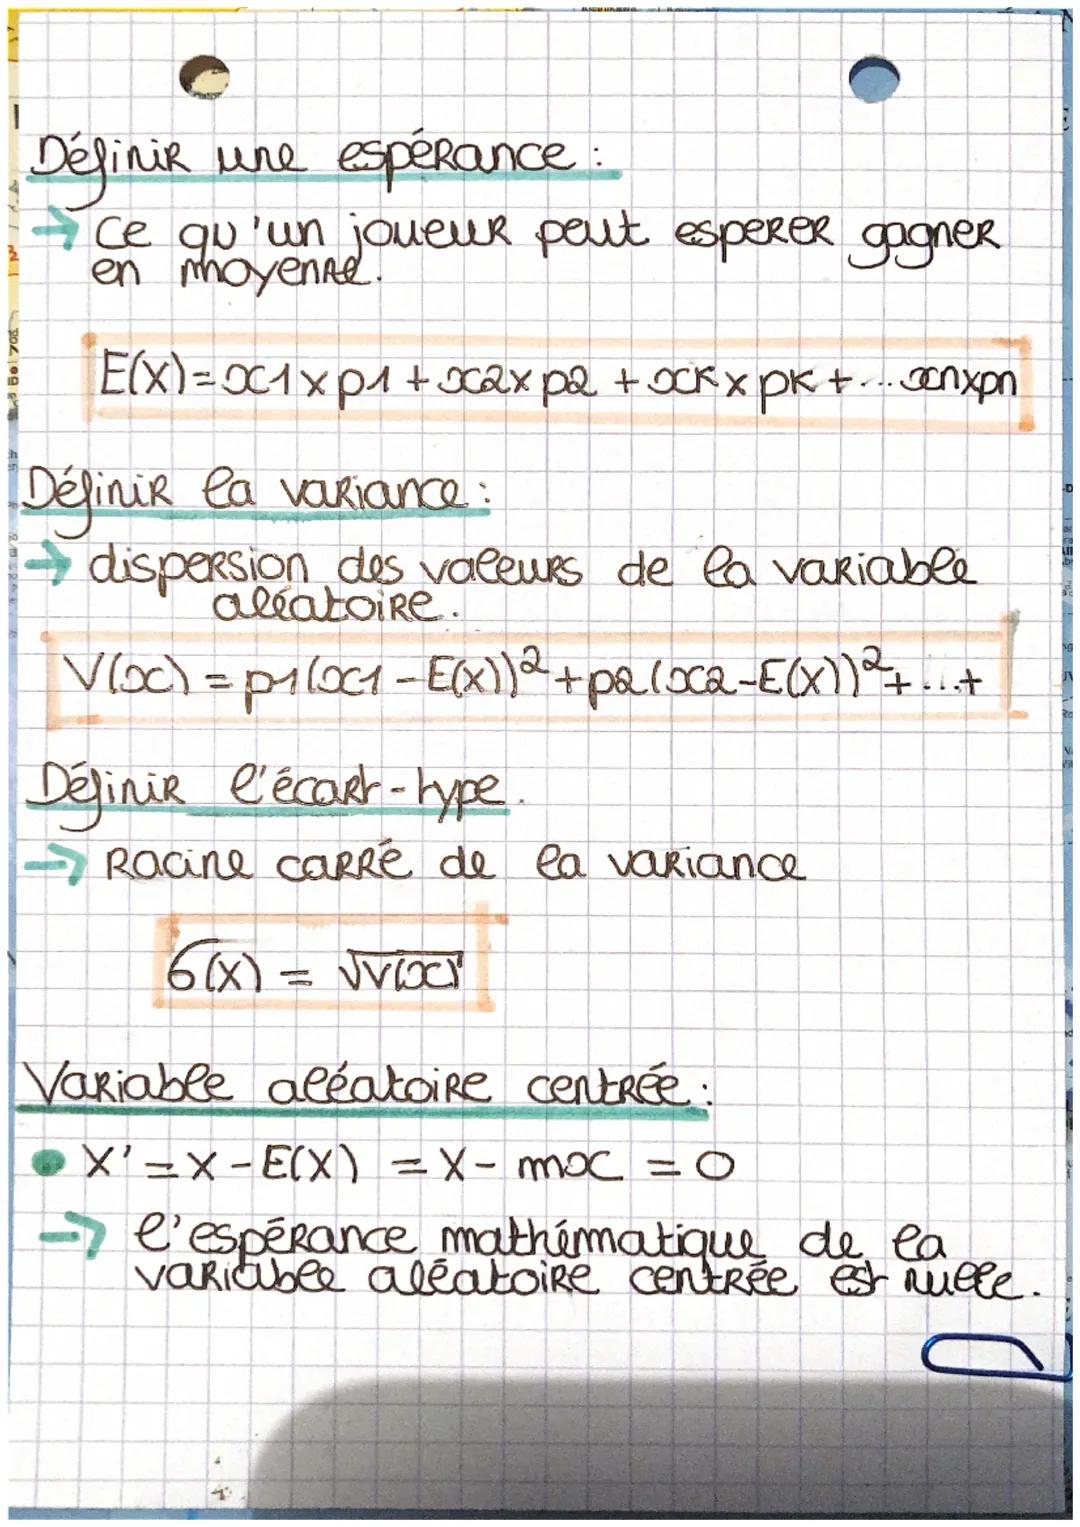 Définir une espérance :
→ Ce qu'un joueur peut esperer gagner
en moyenne.
E(X)=x1xp1+x2xp2+xkxpk+...xnxpn
Définir la variance :
→ dispersion des valeurs de la variable
aléatoire.
V(x) = p1(x1-E(X))²+p2(x2-E(X))²+...+
Définir l'écart-type.
→ Racine carré de la variance
σ(X) = √V(x)
Variable aléatoire centrée :
• X' = X - E(X) = X - mx = 0
→ l'espérance mathématique de la
variable aléatoire centrée est nulle.